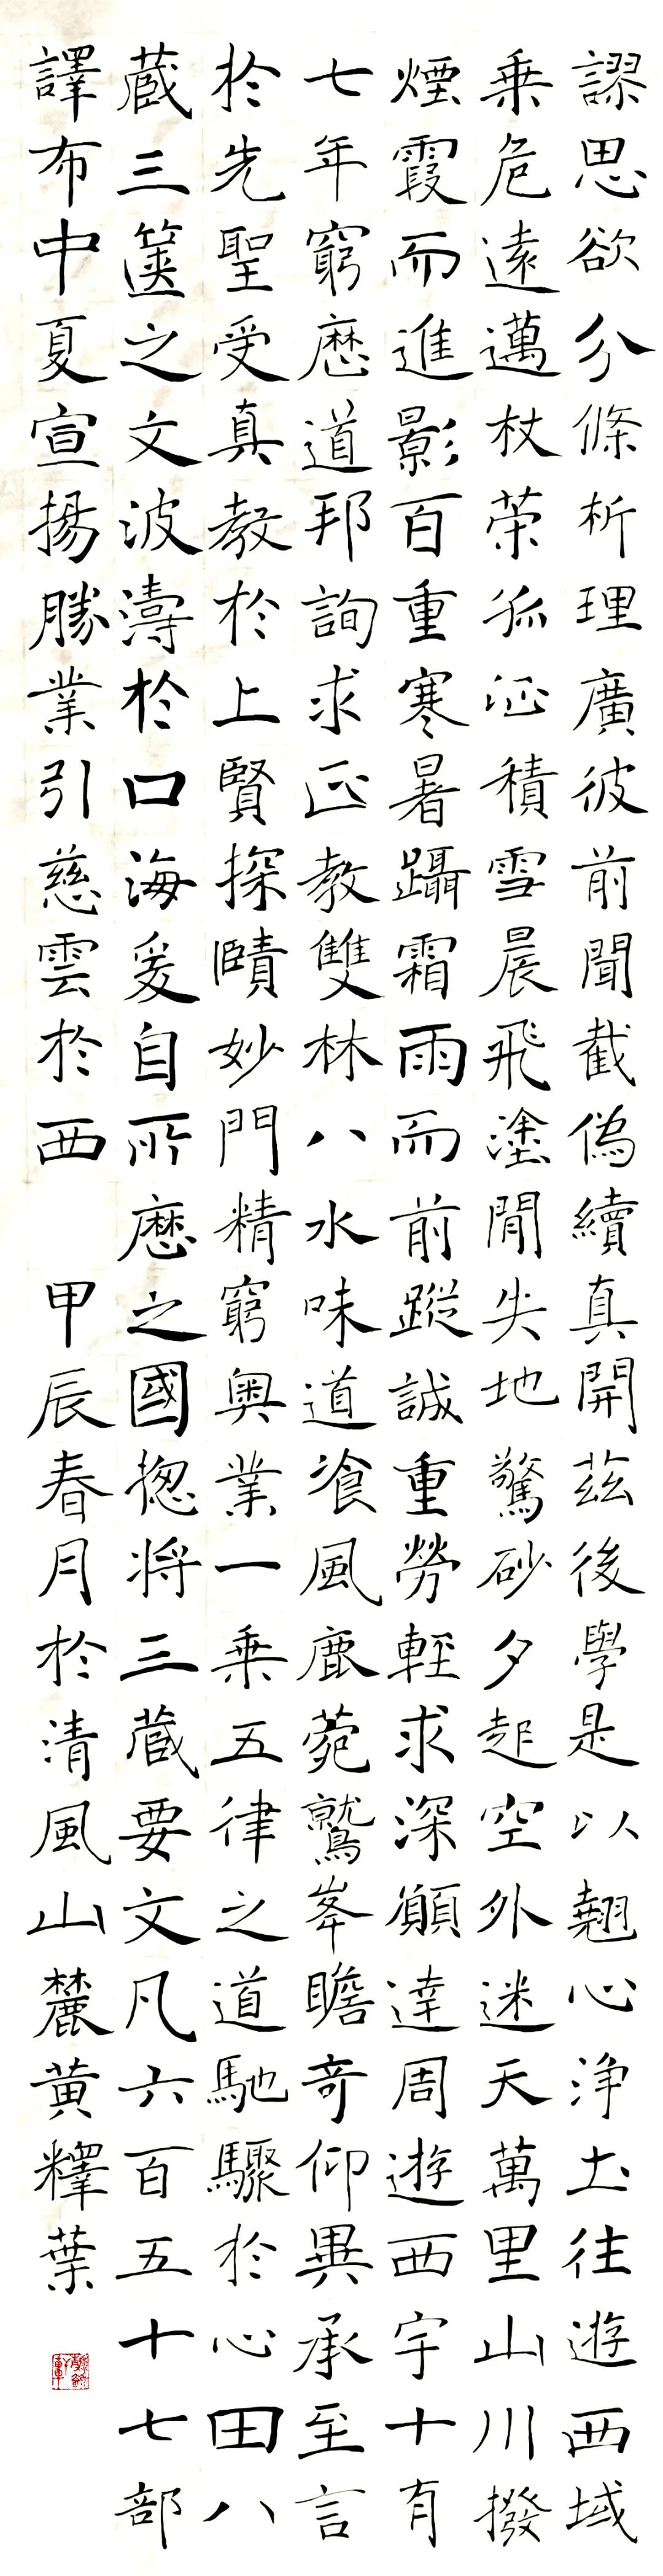 謬思欲分條析理廣彼前聞截偽續真開茲後學是以翹心淨土往遊西域
乗危遠邁杖策孤征積雪晨飛塗閒失地驚砂夕起空外迷天萬里山川撥
煙霞而進影百重寒暑躡霜雨而前蹤誠重勞輕求深願達周遊西宇十有
七年窮歷道邦詢求正教雙林八水味道飡風鹿菀鷲峯瞻奇仰異承至言
於先聖受真教於上賢探賾妙門精窮奥業一乗五律之道馳驟於心田八
蔵三篋之文波濤於口海爰自所歷之國揔将三蔵要文凡六百五十七部
譯布中夏宣揚勝業引慈雲於西 甲辰春月於清風山麓黄釋葉